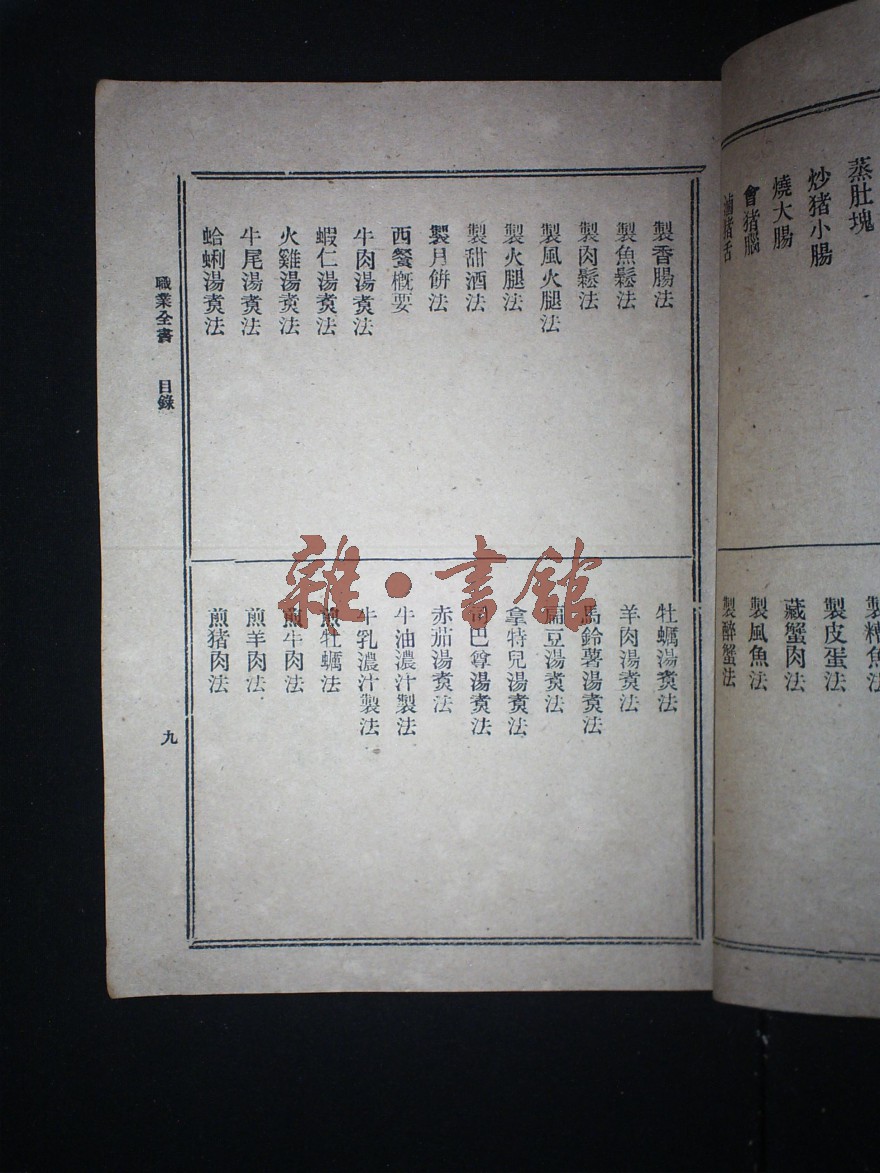 蒸肚塊
炒猪小腸
燒大腸
會猪腦
猪舌
製糟魚法
製皮蛋法
藏蟹肉法
製風魚法
製醉蟹法
製香腸法
製魚鬆法
製肉鬆法
製風火腿法
製火腿法
製甜酒法
製月餅法
西餐概要
牛肉湯煑法
蝦仁湯煑法
火雞湯煑法
牛尾湯煑法
蛤蜊湯煑法
牡蠣湯煑法
羊肉湯煑法
馬鈴薯湯煑法
扁豆湯煑法
拿特兒湯煑法
巴尊湯煑法
赤茄湯煑法
牛油濃汁製法
牛乳濃汁製法
煎牡蠣法
煎牛肉法
煎羊肉法
煎猪肉法
職業全書 目錄
九
雜·書館